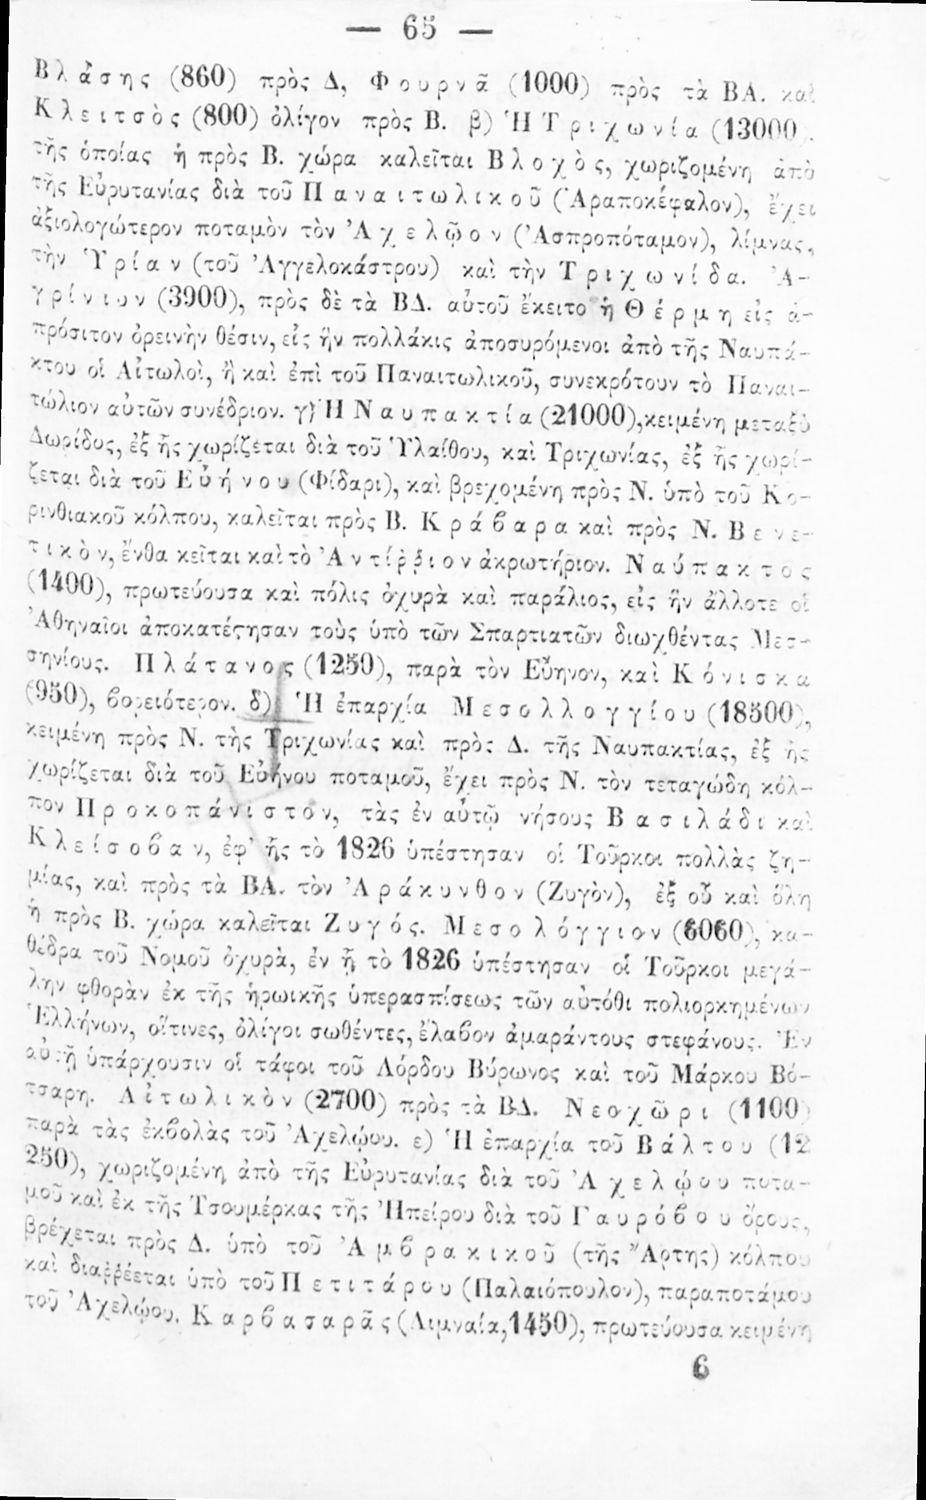 — 65 —
Βλάσης (860) πρὸς Δ, Φουρνᾶ (1000) πρὸς τὰ ΒΑ. καὶ
Κλειτσὸς (800) ὀλίγον πρὸς Β. β) Ἡ Τριχωνία (13000).
τῆς ὁποίας ἡ πρὸς Β. χώρα καλεῖται Βλοχὸς, χωριζομένη ἀπὸ
τῆς Εὐρυτανίας διὰ τοῦ Παναιτωλικοῦ (Ἀραποκέφαλον), ἔχει
ἀξιολογώτερον ποταμὸν τὸν Ἀχελῷον (Ἀσπροπόταμον), λίμνας,
τὴν Ὑρίαν (τοῦ Ἀγγελοκάστρου) καὶ τὴν Τριχωνίδα. Ἀ-
γρίνιον (3900), πρὸς δὲ τὰ ΒΔ. αὐτοῦ ἔκειτο ἡ Θέρμη εἰς ἀ-
πρόσιτον ὀρεινὴν θέσιν, εἰς ἣν πολλάκις ἀποσυρόμενοι ἀπὸ τῆς Ναυπά-
κτου οἱ Αἰτωλοὶ, ἢ καὶ ἐπὶ τοῦ Παναιτωλικοῦ, συνεκρότουν τὸ Παναι-
τώλιον αὐτῶν συνέδριον. γ) Ἡ Ναυπακτία (21000), κειμένη μεταξὺ
Δωρίδος, ἐξ ἧς χωρίζεται διὰ τοῦ Ὑλαίθου, καὶ Τριχωνίας, ἐξ ἧς χωρί-
ζεται διὰ τοῦ Εὐήνου (Φίδαρι), καὶ βρεχομένη πρὸς Ν. ὑπὸ τοῦ Κο-
ρινθιακοῦ κόλπου, καλεῖται πρὸς Β. Κράβαρα καὶ πρὸς Ν. Βενε-
τικὸν, ἔνθα κεῖται καὶ τὸ Ἀντίῤῥιον ἀκρωτήριον. Ναύπακτος
(1400), πρωτεύουσα καὶ πόλις ὀχυρὰ καὶ παράλιος, εἰς ἣν ἄλλοτε οἱ
Ἀθηναῖοι ἀποκατέστησαν τοὺς ὑπὸ τῶν Σπαρτιατῶν διωχθέντας Μεσ-
σηνίους. Πλάτανος (1250), παρὰ τὸν Εὔηνον, καὶ Κόνισκα
(950), βορειότερον. δ) Ἡ ἐπαρχία Μεσολλογγίου (18500),
κειμένη πρὸς Ν. τῆς Τριχωνίας καὶ πρὸς Δ. τῆς Ναυπακτίας, ἐξ ἧς
χωρίζεται διὰ τοῦ Εὐήνου ποταμοῦ, ἔχει πρὸς Ν. τὸν τεταγώδη κόλ-
πον Προκοπάνιστον, τὰς ἐν αὐτῷ νήσους Βασιλάδι καὶ
Κλείσοβαν, ἐφ' ἧς τὸ 1826 ὑπέστησαν οἱ Τοῦρκοι πολλὰς ζη-
μίας, καὶ πρὸς τὰ ΒΑ. τὸν Ἀράκυνθον (Ζυγὸν), ἐξ οὗ καὶ ὅλη
ἡ πρὸς Β. χώρα καλεῖται Ζυγός. Μεσολόγγιον (6060), κα-
θέδρα τοῦ Νομοῦ ὀχυρὰ, ἐν ᾗ τὸ 1826 ὑπέστησαν οἱ Τοῦρκοι μεγά-
λην φθορὰν ἐκ τῆς ἡρωικῆς ὑπερασπίσεως τῶν αὐτόθι πολιορκημένων
Ἑλλήνων, οἵτινες, ὀλίγοι σωθέντες, ἔλαβον ἀμαράντους στεφάνους. Ἐν
αὐτῇ ὑπάρχουσιν οἱ τάφοι τοῦ Λόρδου Βύρωνος καὶ τοῦ Μάρκου Βό-
τσαρη. Αἰτωλικὸν (2700) πρὸς τὰ ΒΔ. Νεοχῶρι (1100)
παρὰ τὰς ἐκβολὰς τοῦ Ἀχελῴου. ε) Ἡ ἐπαρχία τοῦ Βάλτου (12
250), χωριζομένη ἀπὸ τῆς Εὐρυτανίας διὰ τοῦ Ἀχελῴου ποτα-
μοῦ καὶ ἐκ τῆς Τσουμέρκας τῆς Ἠπείρου διὰ τοῦ Γαυρόβου ὄρους,
βρέχεται πρὸς Δ. ὑπὸ τοῦ Ἀμβρακικοῦ (τῆς Ἄρτης) κόλπου
καὶ διαῤῥέεται ὑπὸ τοῦ Πετιτάρου (Παλαιόπουλον), παραποτάμου
τοῦ Ἀχελῴου. Καρβασαρᾶς (Λιμναία, 1450), πρωτεύουσα κειμένη
6